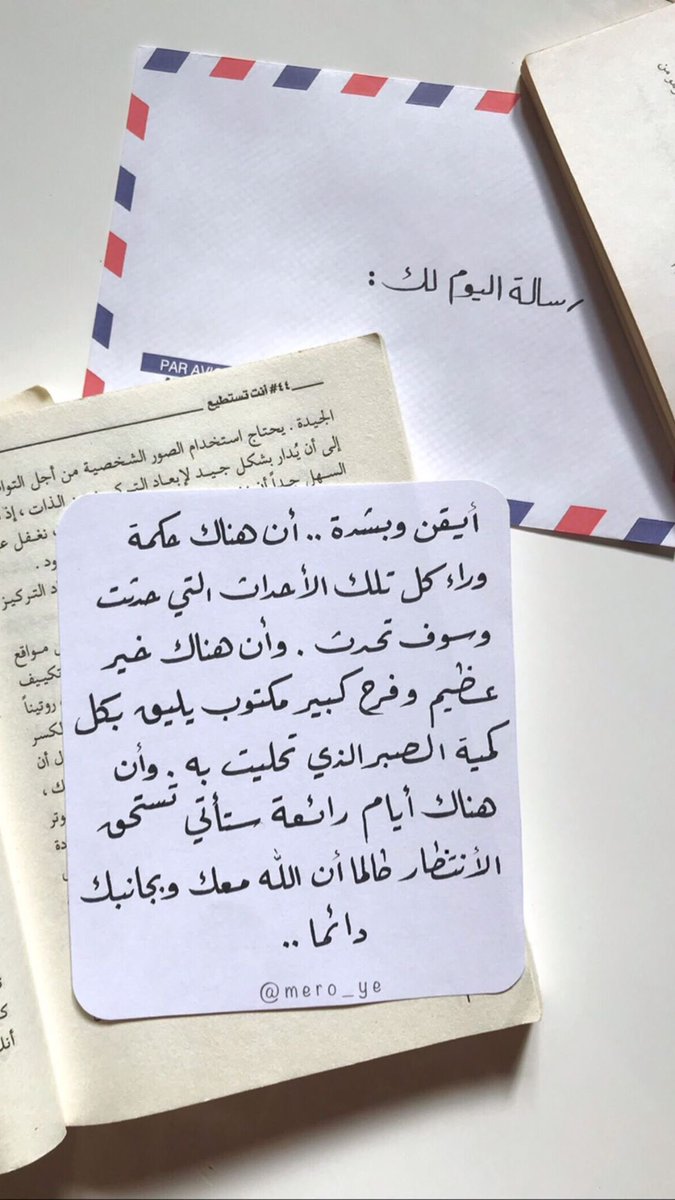 رسالة اليوم لك :
PAR AVI
#٤٤ أنت تستطيع
الجيدة . يحتاج استخدام الصور الشخصية من أجل
إلى أن يُدار بشكل جيد لإبعاد
السهل جداً
أيقن وبشدة .. أن هناك حكمة
وراء كل تلك الأحداث التي حدثت
وسوف تحدث . وأن هناك خير
عظيم وفرح كبير مكتوب يليق بكل
كمية الصبر الذي تحليت به . وأن
هناك أيام رائعة ستأتي تستحق
الأنتظار طالما أن الله معك وبجانبك
دائما ..
@mero_ye